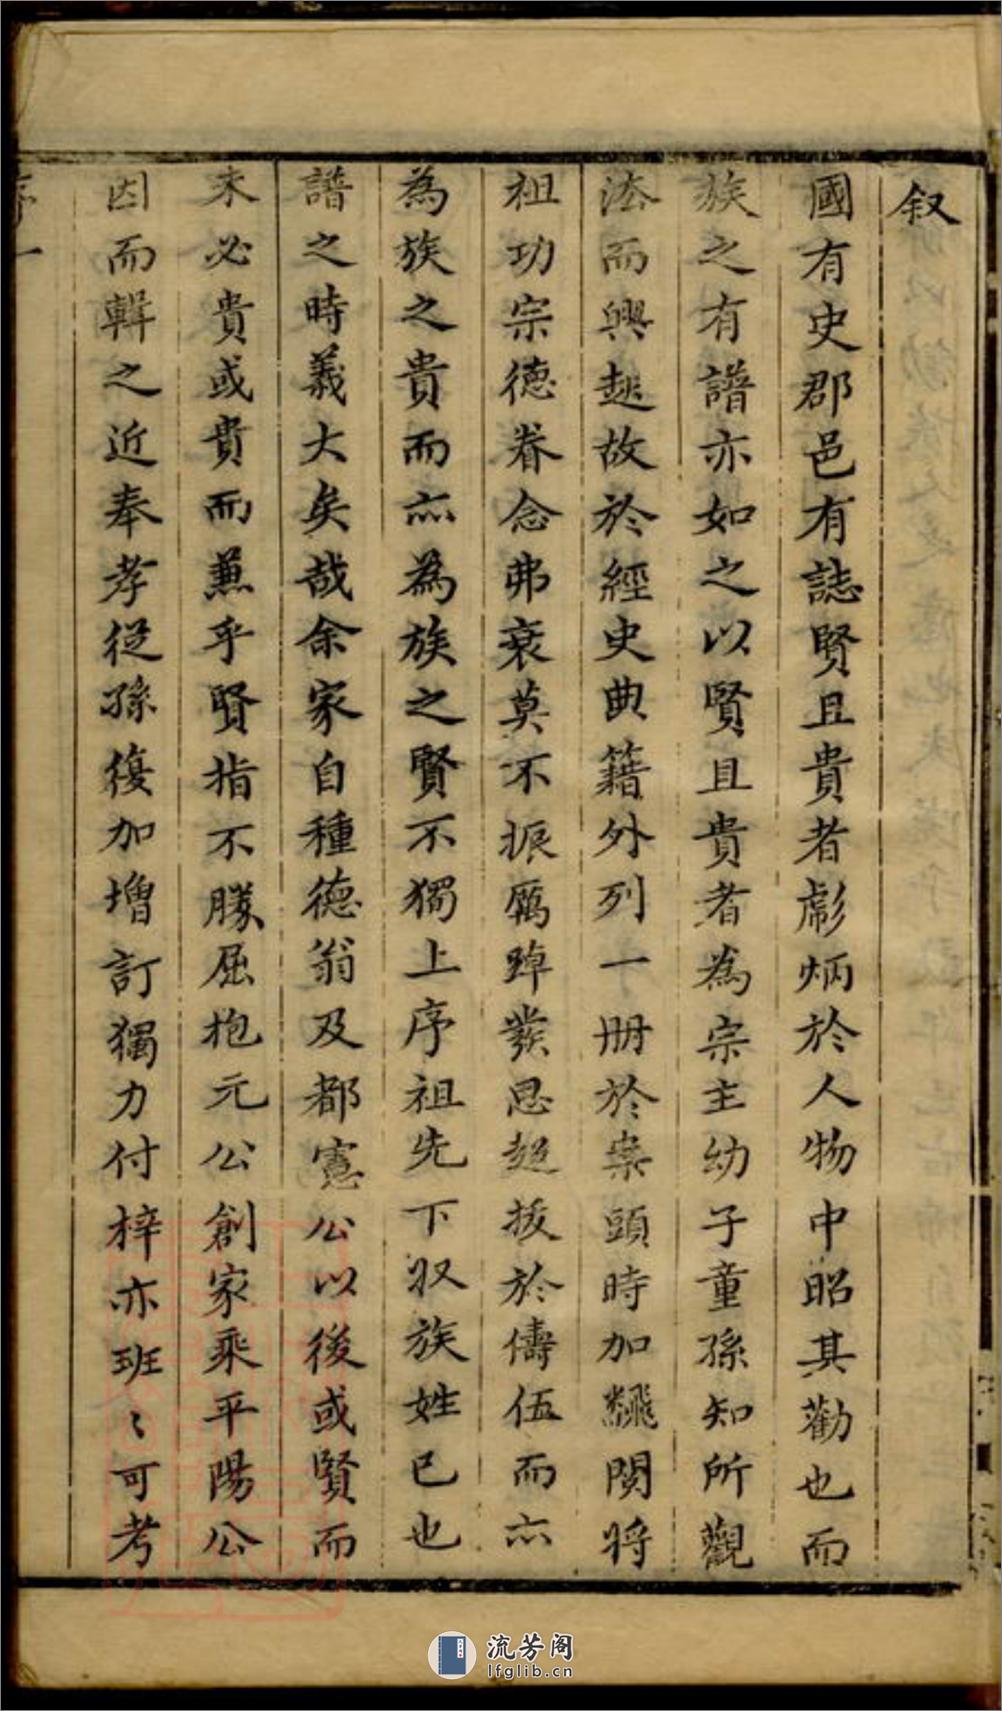 叙
國有史郡邑有誌賢且貴者彪炳於人物中昭其勸也而
族之有譜亦如之以賢且貴者為宗主幼子童孫知所觀
法而興起故於經史典籍外列一册於案頭時加飜閱将
祖功宗德眷念弗衰莫不振厲踔發思超拔於儔伍而亦
為族之貴而亦為族之賢不獨上序祖先下収族姓已也
譜之時義大矣哉余家自種德翁及都憲公以後或賢而
未必貴或貴而兼乎賢指不勝屈抱元公創家乘平陽公
因而輯之近奉孝從孫復加增訂獨力付梓亦班〻可考
序一
流芳阁
lfglib.cn